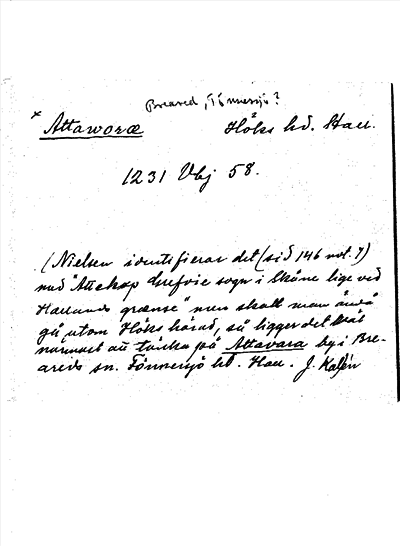 Breared, Tönnersjö?
* Attaworæ Höks hd. Hall.
1231 Vbj 58.
(Nielsen identifierar det (sid 146 not. 7)
med "Attekop Grefvie sogn i Skåne lige ved
Hallands grænse" men skall man ändå
gå utom Höks härad, så ligger det
närmast att tänka på Attavara by i Bre-
areds sn. Tönnersjö hd. Hall. J. Kalén